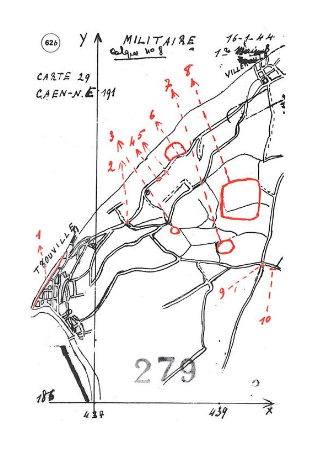 62b
Y MILITAIRE 16-1-44
Calque no 8
VILLE
CARTE 29
CAEN-N.E 191
8
7
6
3 4 5
2
1
TROUVILLE
9
10
279
186
437 439 X